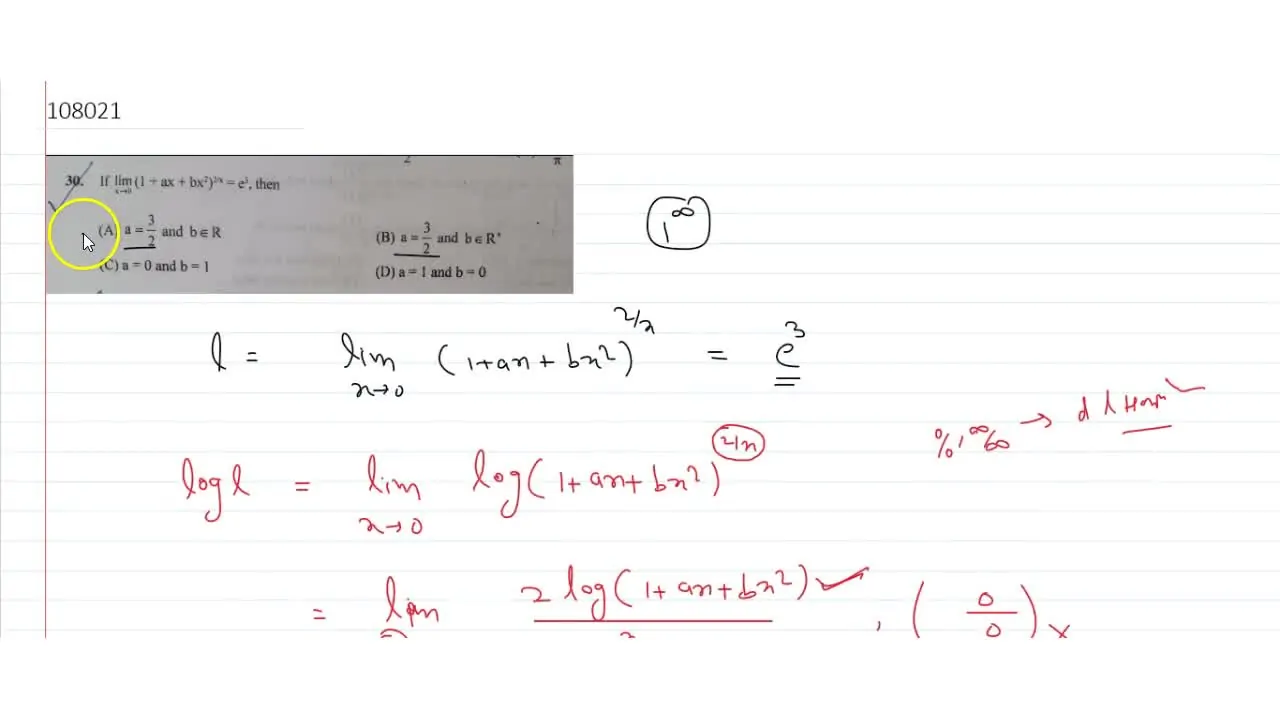 108021
30. If lim (1 + ax + bx²)^2/x = e³, then
x→0
(A) a = 3/2 and b ∈ R
(B) a = 3/2 and b ∈ R⁺
(C) a = 0 and b = 1
(D) a = 1 and b = 0
1^∞
l = lim (1+ax+bx²)^2/x = e³
x→0
log l = lim log(1+ax+bx²)^2/x
x→0
= lim 2 log(1+ax+bx²) , (0/0)